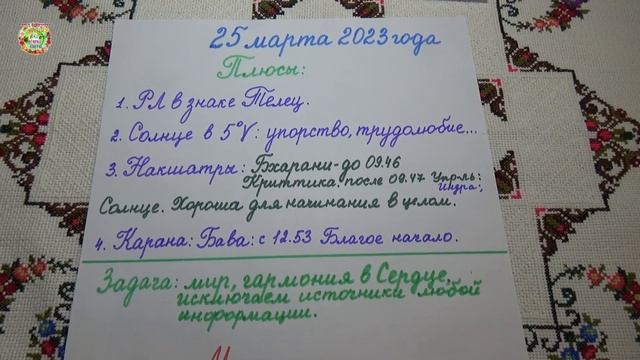 25 марта 2023 года
Плюсы:
1. РЛ в знаке Телец.
2. Солнце в 5°♈: упорство, трудолюбие...
3. Накшатры: Бхарани- до 09.46
Криттика: после 09.47 Упр-ль:
Индра;
Солнце. Хороша для начинания в целом.
4. Карана: Бава: с 12.53 Благое начало.
Задача: мир, гармония в Сердце,
исключаем источники любой
информации.